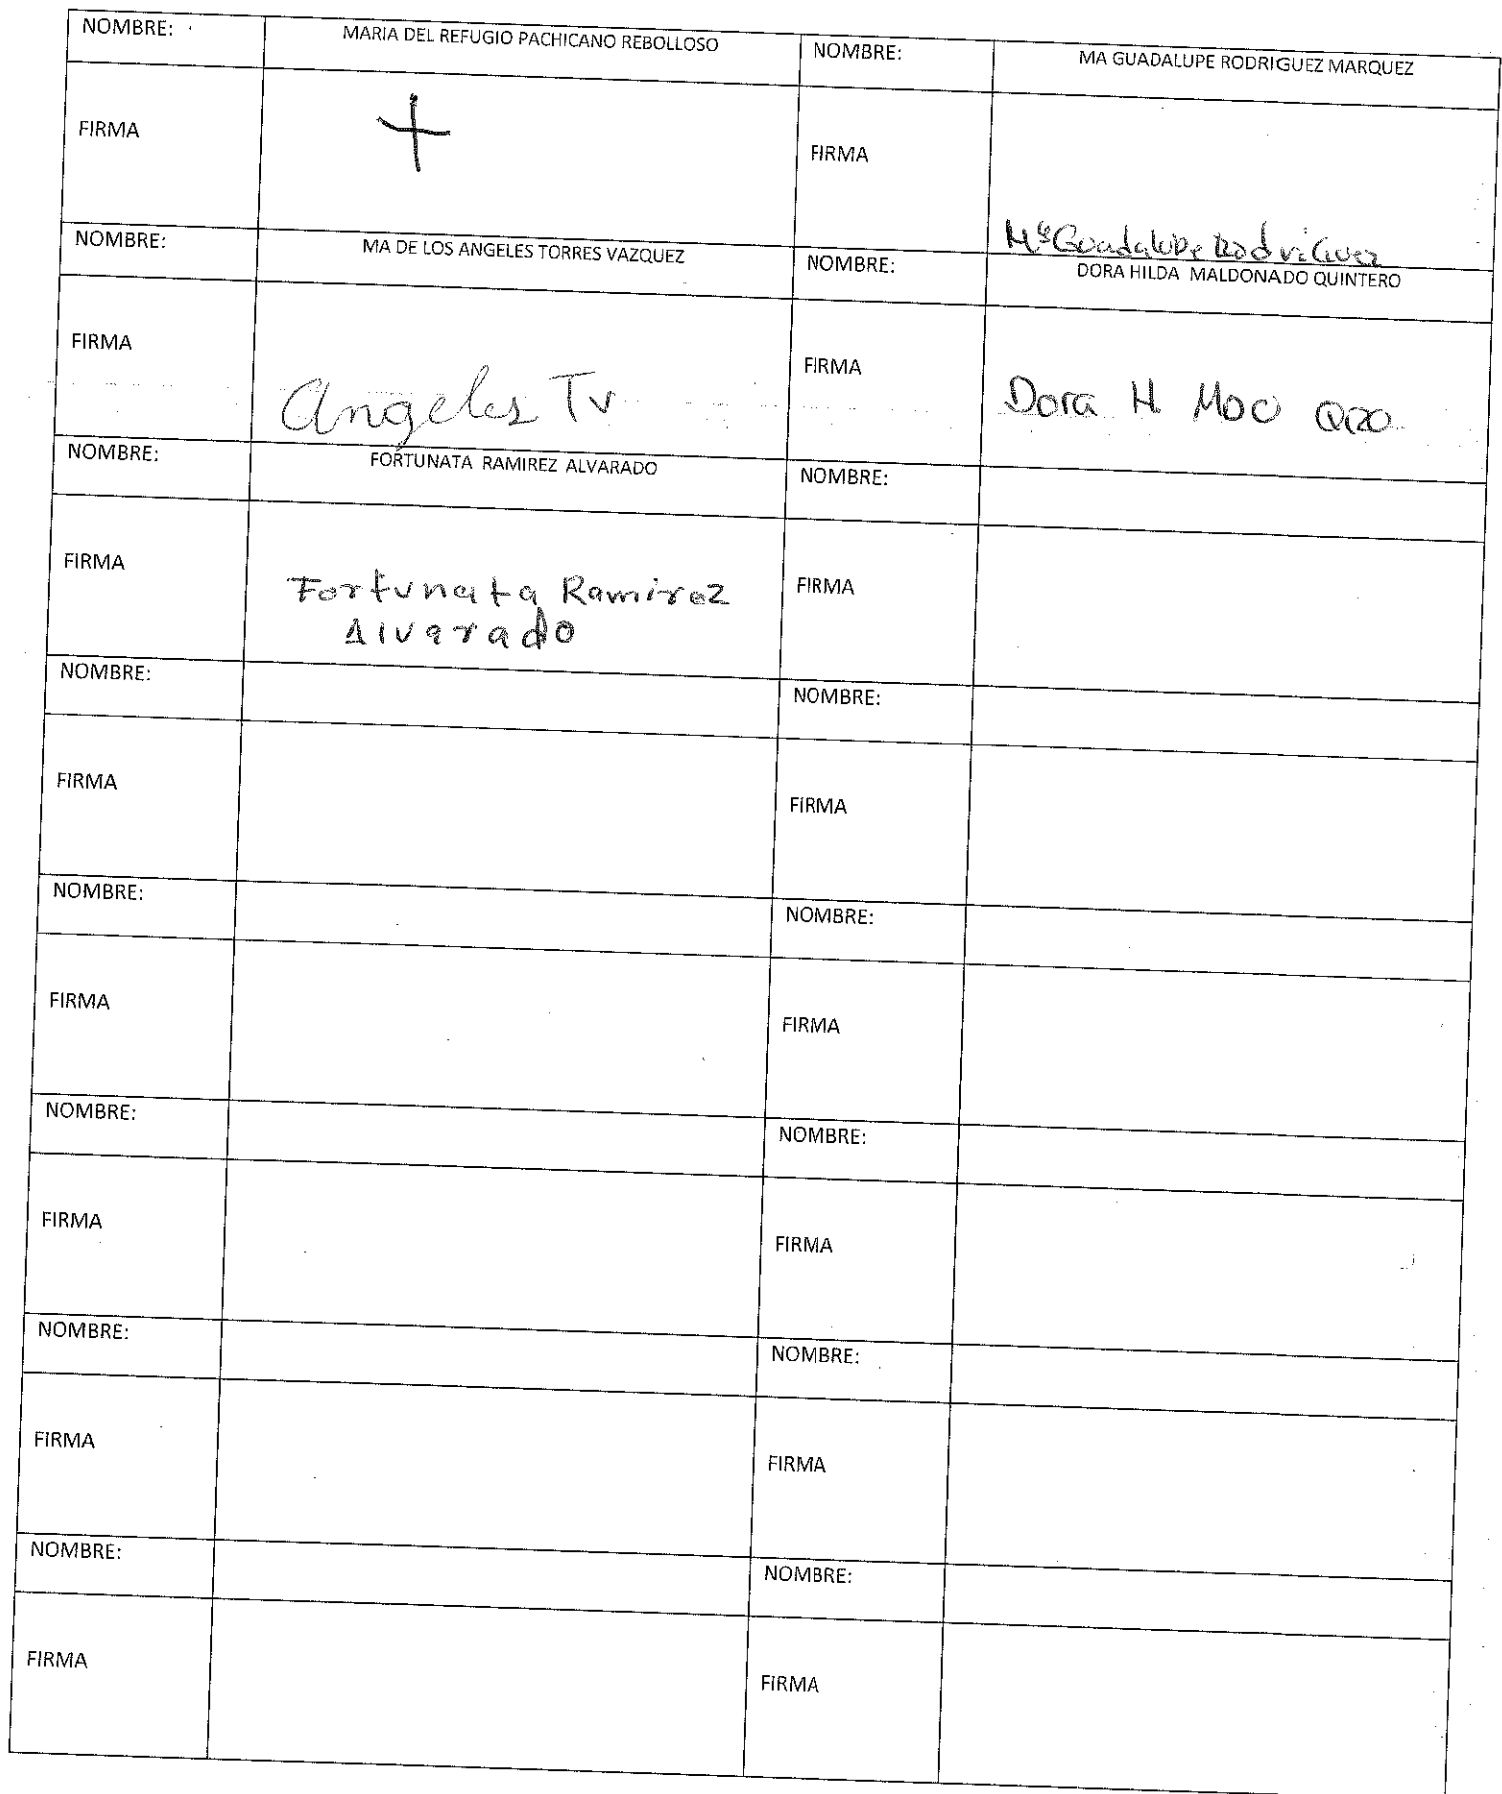 NOMBRE: MARIA DEL REFUGIO PACHICANO REBOLLOSO NOMBRE: MA GUADALUPE RODRIGUEZ MARQUEZ
FIRMA + FIRMA Mª Guadalupe Rodriguez
NOMBRE: MA DE LOS ANGELES TORRES VAZQUEZ NOMBRE: DORA HILDA MALDONADO QUINTERO
FIRMA Angeles Tv FIRMA Dora H MDO QRO
NOMBRE: FORTUNATA RAMIREZ ALVARADO NOMBRE:
FIRMA Fortunata Ramirez FIRMA
Alvarado
NOMBRE: NOMBRE:
FIRMA FIRMA
NOMBRE: NOMBRE:
FIRMA FIRMA
NOMBRE: NOMBRE:
FIRMA FIRMA
NOMBRE: NOMBRE:
FIRMA FIRMA
NOMBRE: NOMBRE:
FIRMA FIRMA